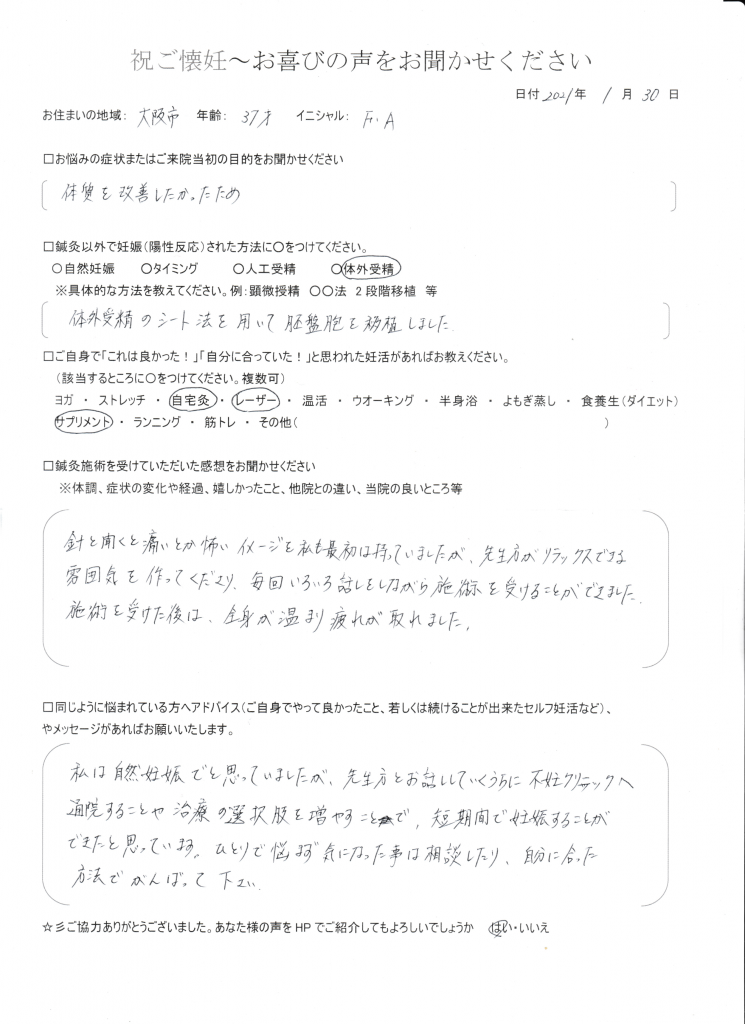 祝ご懐妊～お喜びの声をお聞かせください
日付 2021年 1月 30日
お住まいの地域: 大阪市 年齢: 37才 イニシャル: F.A
□お悩みの症状またはご来院当初の目的をお聞かせください
体質を改善したかったため
□鍼灸以外で妊娠(陽性反応)された方法に〇をつけてください。
〇自然妊娠 〇タイミング 〇人工受精 〇体外受精
※具体的な方法を教えてください。例:顕微授精 〇〇法 2段階移植 等
体外受精のシート法を用いて胚盤胞を移植しました.
□ご自身で「これは良かった！」「自分に合っていた！」と思われた妊活があればお教えください。
(該当するところに〇をつけてください。複数可)
ヨガ ・ ストレッチ ・ 自宅灸 ・ レーザー ・ 温活 ・ ウオーキング ・ 半身浴 ・ よもぎ蒸し ・ 食養生(ダイエット)
サプリメント ・ ランニング ・ 筋トレ ・ その他( )
□鍼灸施術を受けていただいた感想をお聞かせください
※体調、症状の変化や経過、嬉しかったこと、他院との違い、当院の良いところ等
針と聞くと痛いとか怖いイメージを私も最初は持っていましたが、先生方がリラックスできる
雰囲気を作ってくださり、毎回いろいろ話しをしながら施術を受けることができました.
施術を受けた後は、全身が温まり疲れが取れました。
□同じように悩まれている方へアドバイス(ご自身でやって良かったこと、若しくは続けることが出来たセルフ妊活など)、
やメッセージがあればお願いいたします。
私は自然妊娠でと思っていましたが、先生方とお話ししていくうちに不妊クリニックへ
通院することや治療の選択肢を増やすことで、短期間で妊娠することが
できたと思っています。ひとりで悩まず気になった事は相談したり、自分に合った
方法でがんばって下さい.
☆彡ご協力ありがとうございました。あなた様の声をHPでご紹介してもよろしいでしょうか はい・いいえ